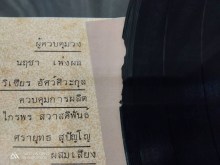 ผู้ควบคุมวง
นฤชา เพ่งผล
วิเชียร อัศว์ศิวะกุล
ควบคุมการผลิต
ไกรพร สวาสดิพันธ์
ศรายุทธ สุปัญโญ
ผสมเสียง